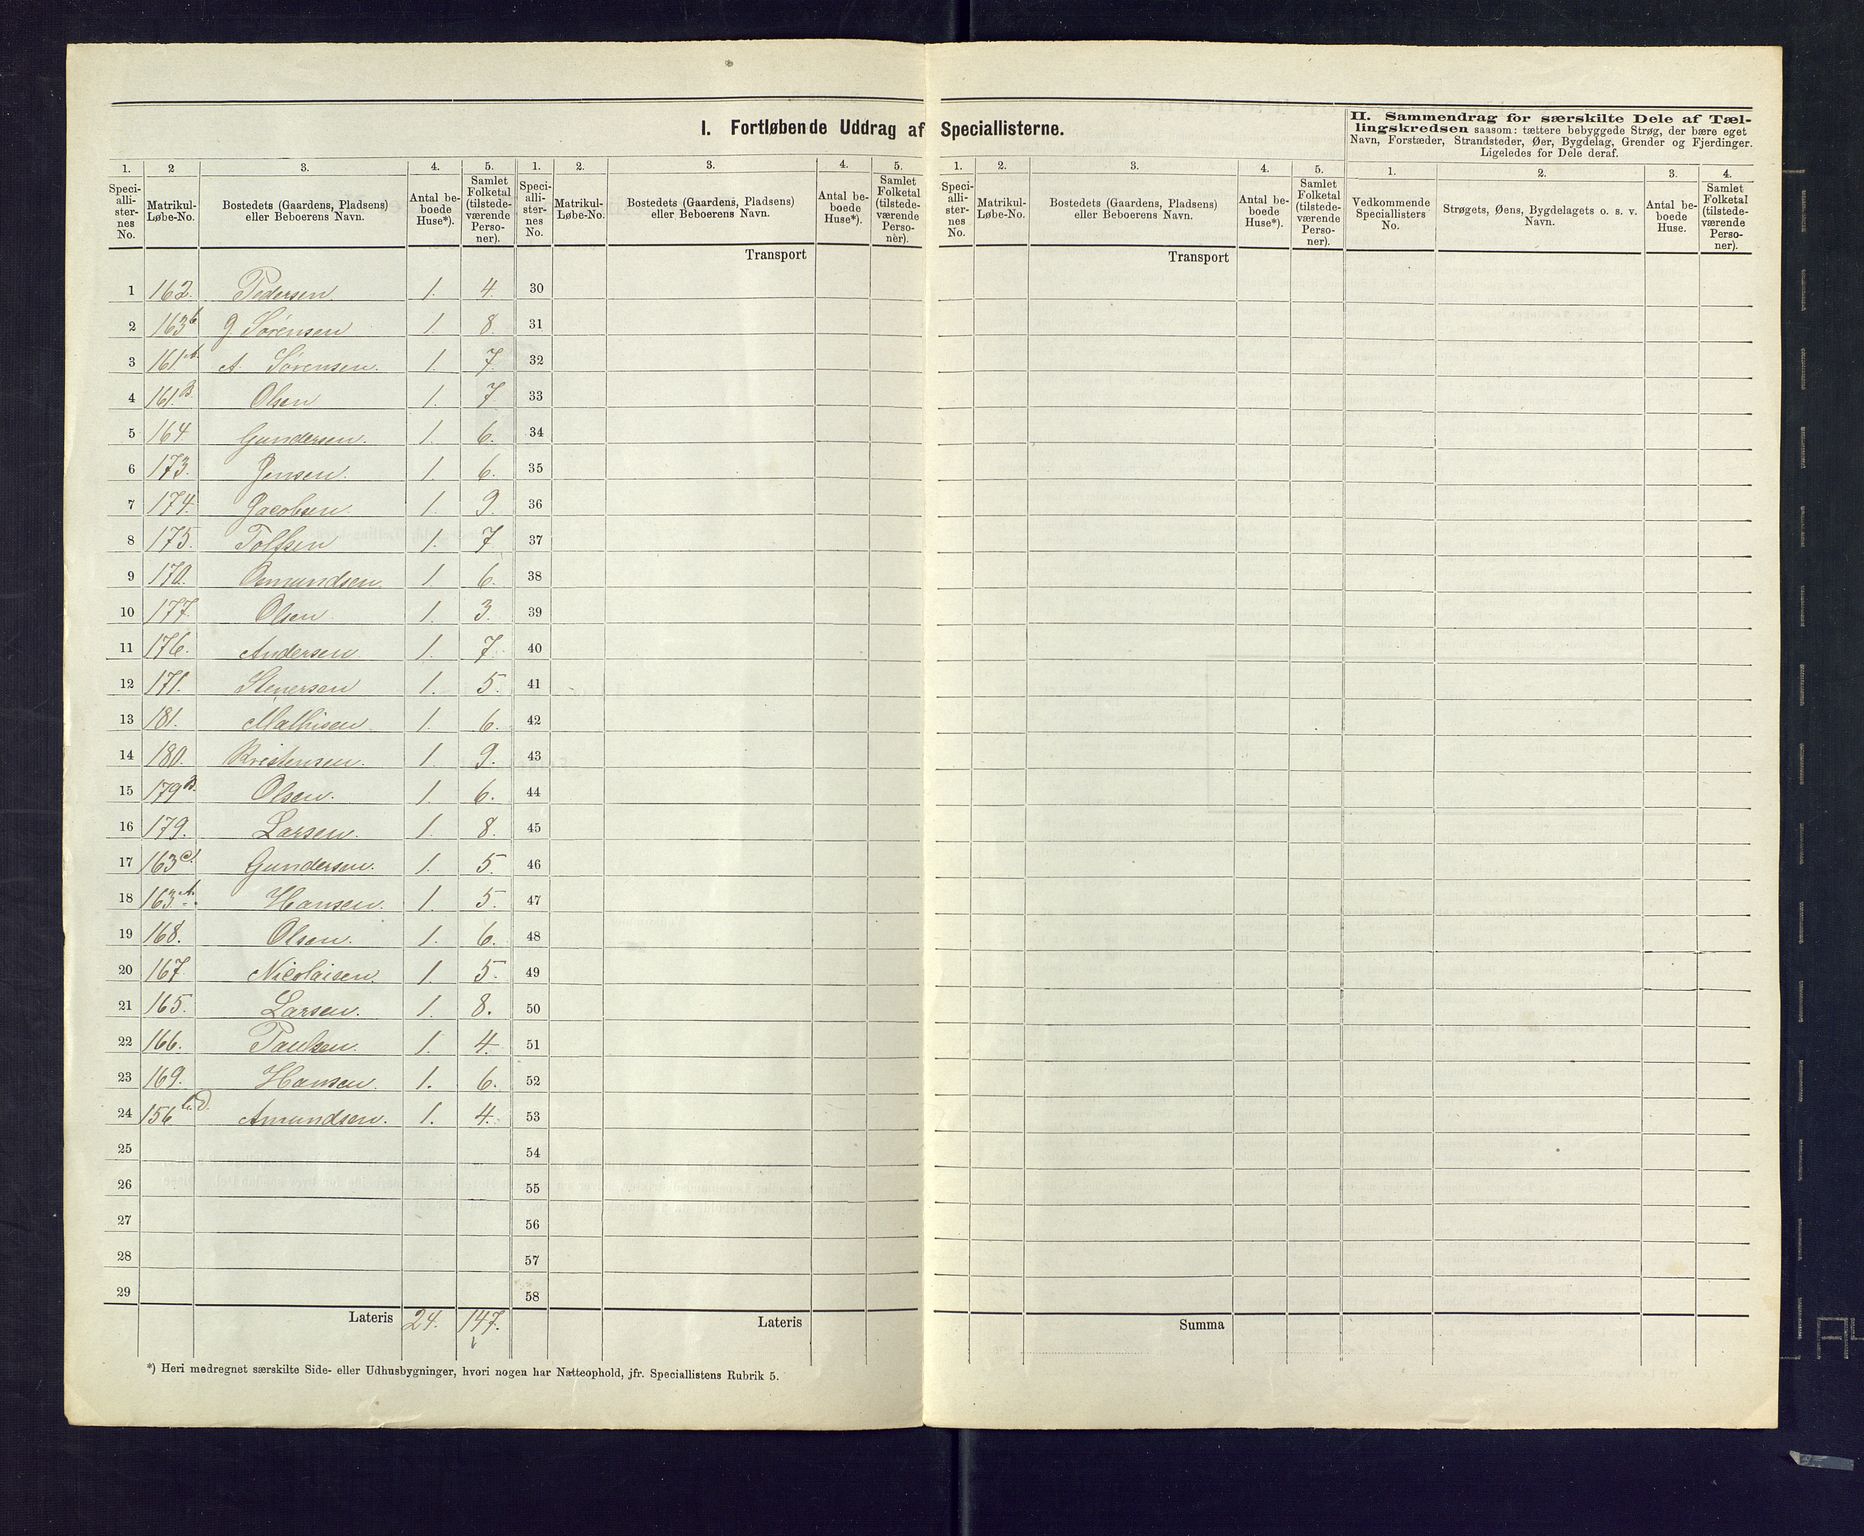 I. Fortløbende Uddrag af Speciallisterne.
II. Sammendrag for særskilte Dele af Tæl-
lingskredsen saasom: tættere bebyggede Strøg, der bære eget
Navn, Forstæder, Strandsteder, Øer, Bygdelag, Grender og Fjerdinger.
Ligeledes for Dele deraf.
1. 2 3. 4. 5. 1. 2. 3. 4. 5. 1. 2. 3. 4. 5. 1. 2. 3. 4.
Speci-alli-ster-nes No. Matrikul-Løbe-No. Bostedets (Gaardens, Pladsens) eller Beboerens Navn. Antal be-boede Huse*). Samlet Folketal (tilstede-værende Perso-ner).
Speci-alli-ster-nes No. Matrikul-Løbe-No. Bostedets (Gaardens, Pladsens) eller Beboerens Navn. Antal be-boede Huse*). Samlet Folketal (tilstede-værende Perso-ner).
Speci-alli-ster-nes No. Matrikul-Løbe-No. Bostedets (Gaardens, Pladsens) eller Beboerens Navn. Antal be-boede Huse*). Samlet Folketal (tilstede-værende Perso-ner).
Vedkommende Speciallisters No. Strøgets, Øens, Bygdelagets o. s. v. Navn. Antal be-boede Huse. Samlet Folketal (tilstede-værende Perso-ner).
Transport Transport
1 162. Pedersen 1. 4. 30
2 163b G Sørensen 1. 8. 31
3 161A. A. Sørensen. 1. 7. 32
4 161.B. Olsen 1. 7. 33
5 164 Gundersen. 1. 6. 34
6 173. Jensen. 1. 6. 35
7 174. Jacobsen. 1. 9. 36
8 175. Tolfsen 1. 7. 37
9 170. 1. 6. 38
10 177. Olsen. 1. 3. 39
11 176. Andersen. 1. 7. 40
12 171. Stenersen 1. 5. 41
13 181. Mathisen. 1. 6. 42
14 180. Kristensen. 1. 9. 43
15 179B. Olsen. 1. 6. 44
16 179. Larsen. 1. 8. 45
17 163c. Gundersen. 1. 5. 46
18 163.A. Hansen. 1. 5. 47
19 168. Olsen. 1. 6. 48
20 167. Nicolaisen. 1. 5. 49
21 165. Larsen. 1. 8. 50
22 166. Paulsen. 1. 4. 51
23 169. Hansen. 1. 6. 52
24 156 Amundsen. 1. 4. 53
25 54
26 55
27 56
28 57
29 58
Lateris 24. 147. Lateris Summa
*) Heri medregnet særskilte Side- eller Udhusbygninger, hvori nogen har Natteophold, jfr. Speciallistens Rubrik 5.